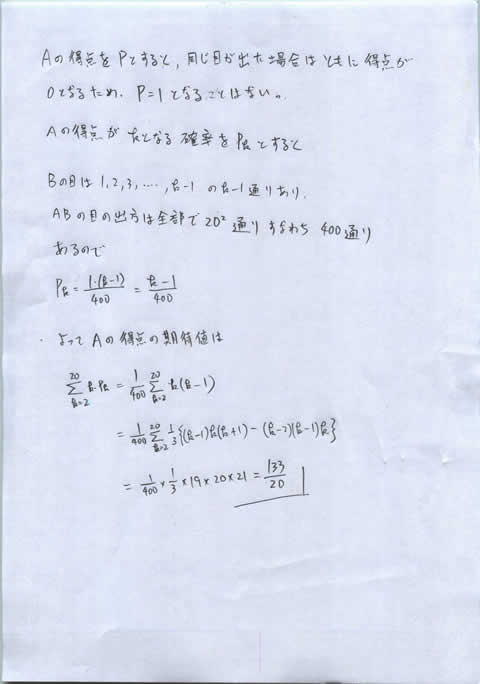 Aの得点をPとすると,同じ目が出た場合はともに得点が
0となるため.P=1となることはない。
Aの得点がkとなる確率をPkとすると
Bの目は1,2,3,…,k-1のk-1通りあり.
ABの目の出方は全部で20²通りすなわち400通り
あるので
Pk = 1・(k-1)/400 = k-1/400
よってAの得点の期待値は
20Σk=2 k・Pk = 1/400 20Σk=2 k(k-1)
= 1/400 20Σk=2 1/3{(k-1)k(k+1)-(k-2)(k-1)k}
= 1/400 × 1/3 × 19 × 20 × 21 = 133/20